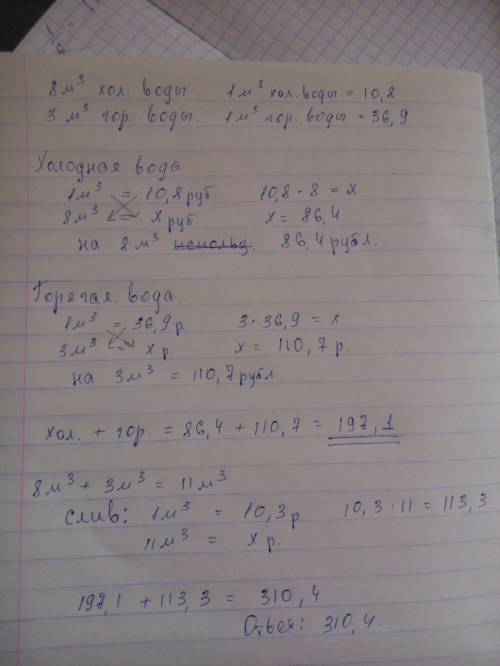 8м³ хол. воды 1м³ хол. воды = 10,8
3 м³ гор. воды. 1м³ гор. воды = 36,9
Холодная вода
1м³ = 10,8 руб. 10,8 · 8 = x
8м³ = x руб. x = 86,4
на 8 м³ использ. 86,4 рубл.
Горячая. вода.
1м³ = 36,9 р. 3 · 36,9 = x
3м³ = x р. x = 110,7 р.
на 3м³ = 110,7 рубл
хол. + гор. = 86,4 + 110,7 = 197,1
8м³ + 3м³ = 11м³
слив: 1м³ = 10,3 р 10,3 · 11 = 113,3
11м³ = x р.
197,1 + 113,3 = 310,4
Ответ: 310,4.